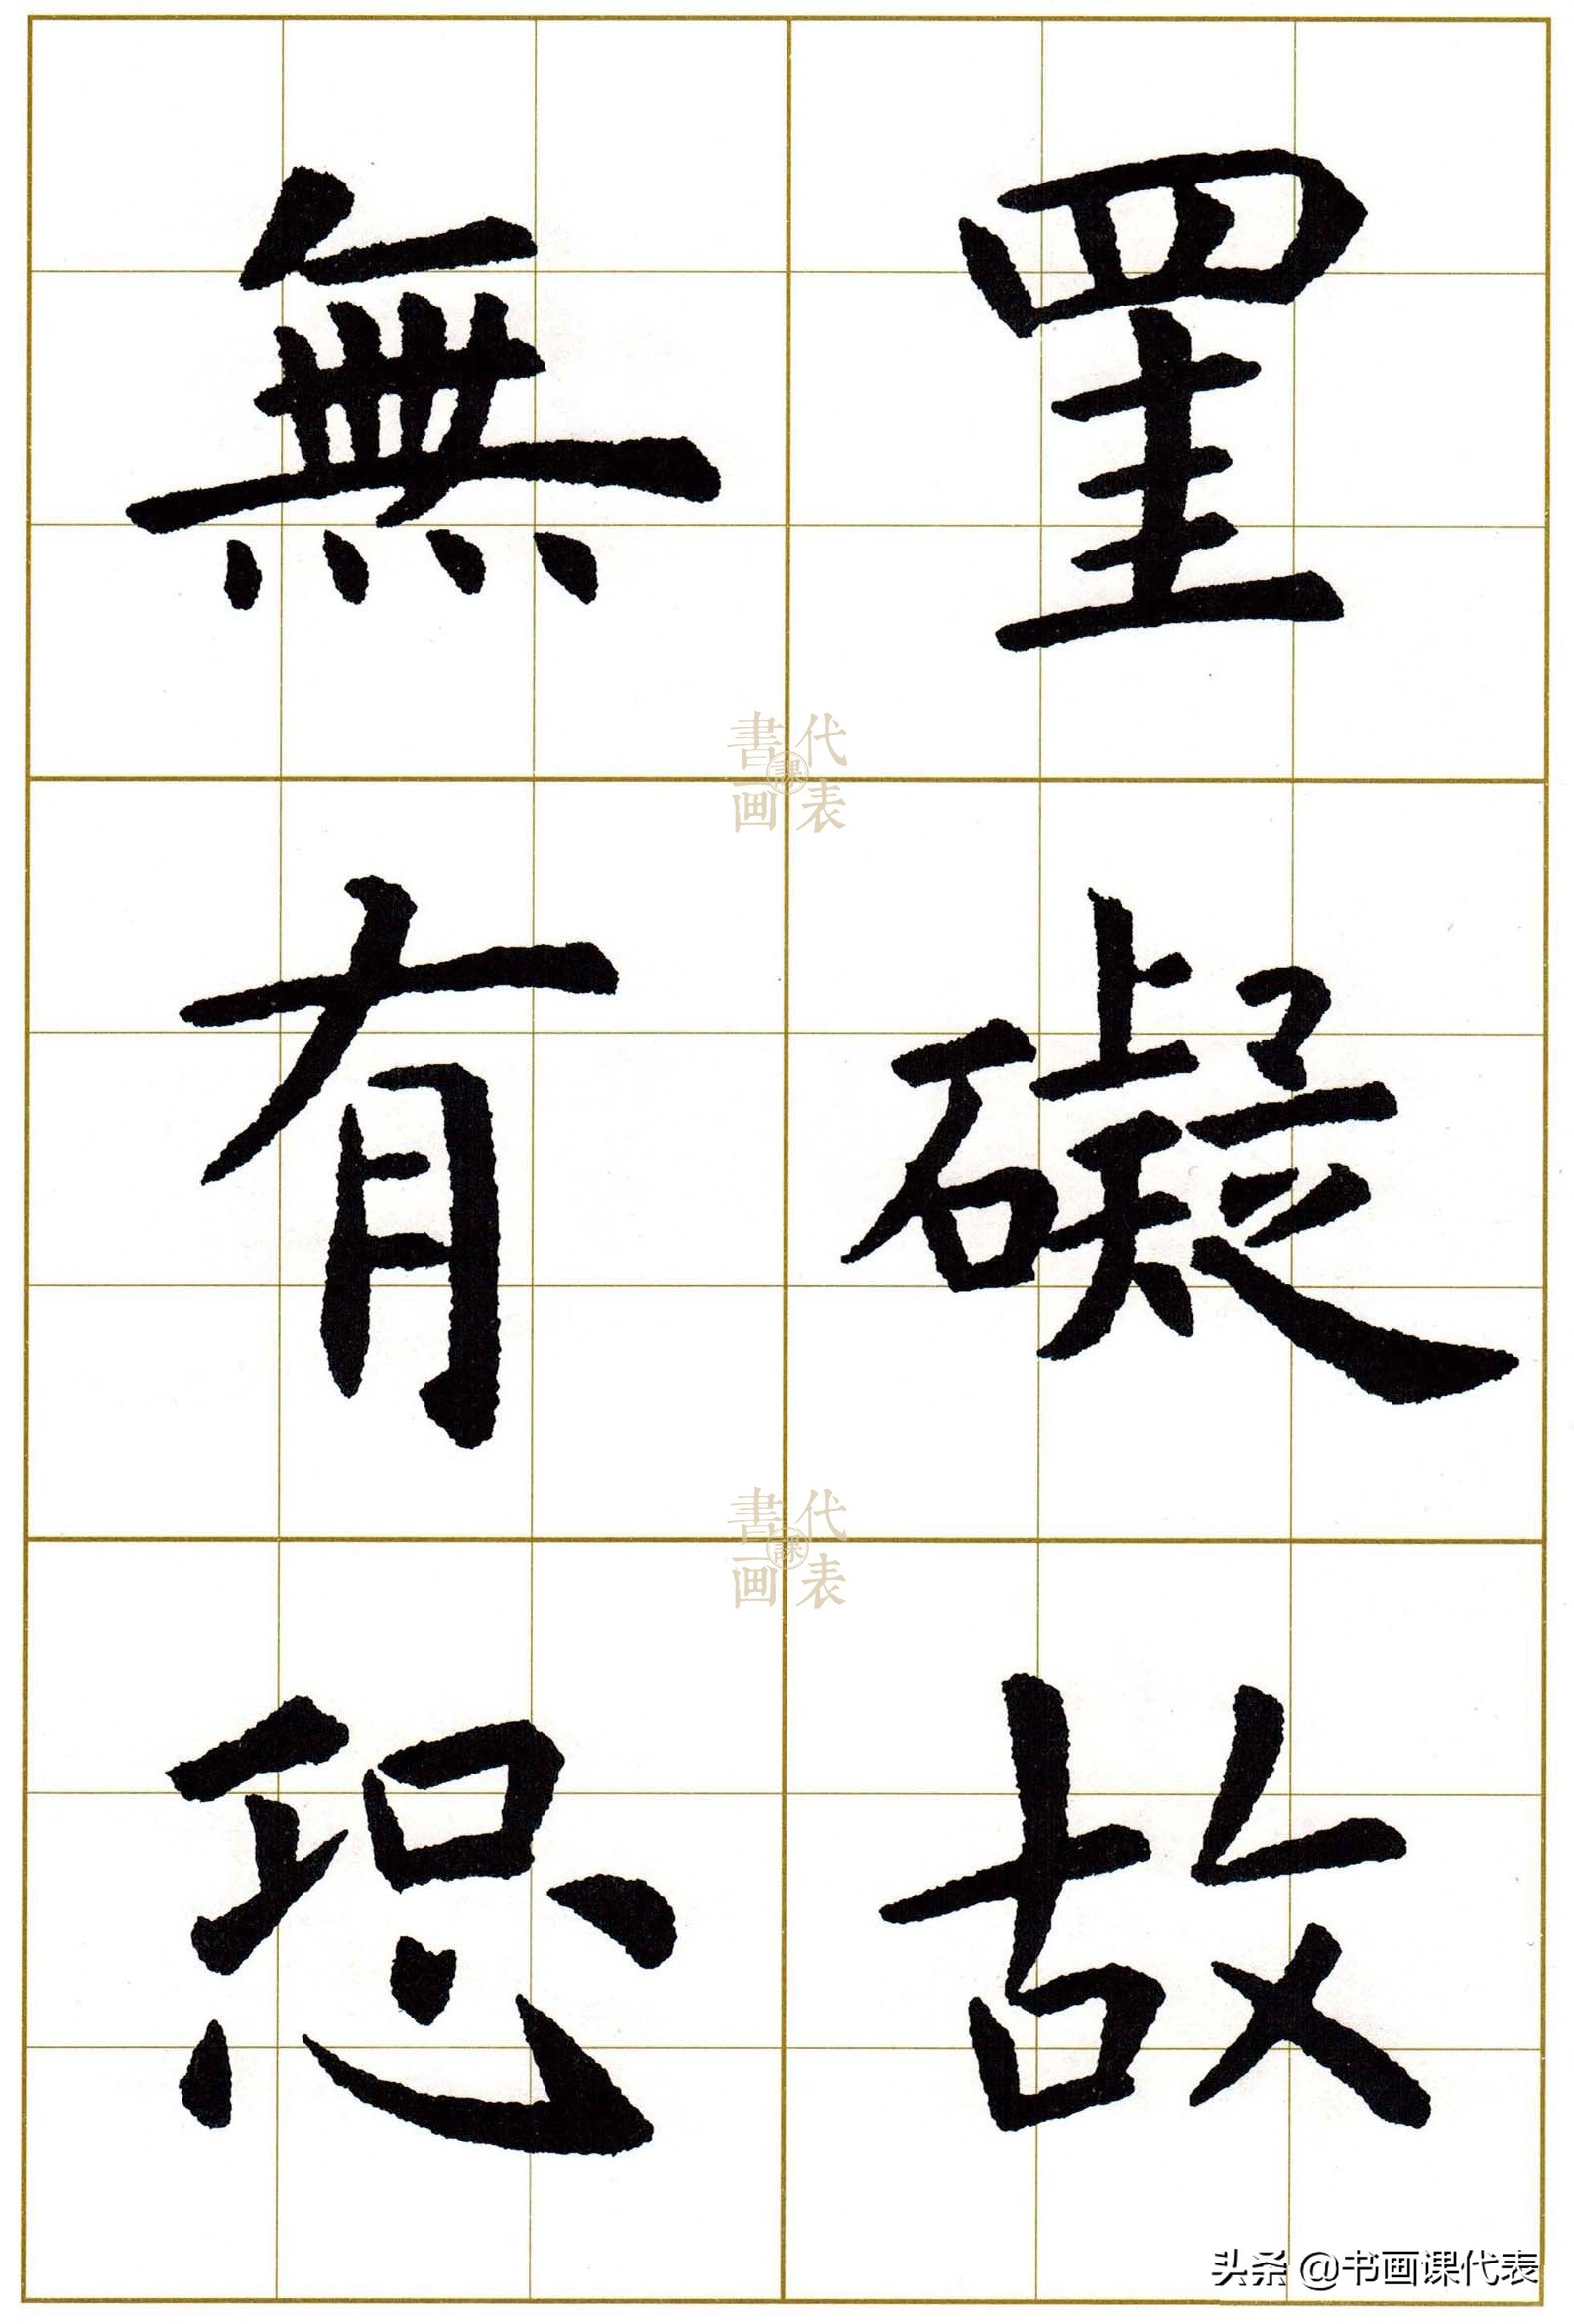 罣礙故
無有恐
書画課代表
書画課代表
头条 @书画课代表